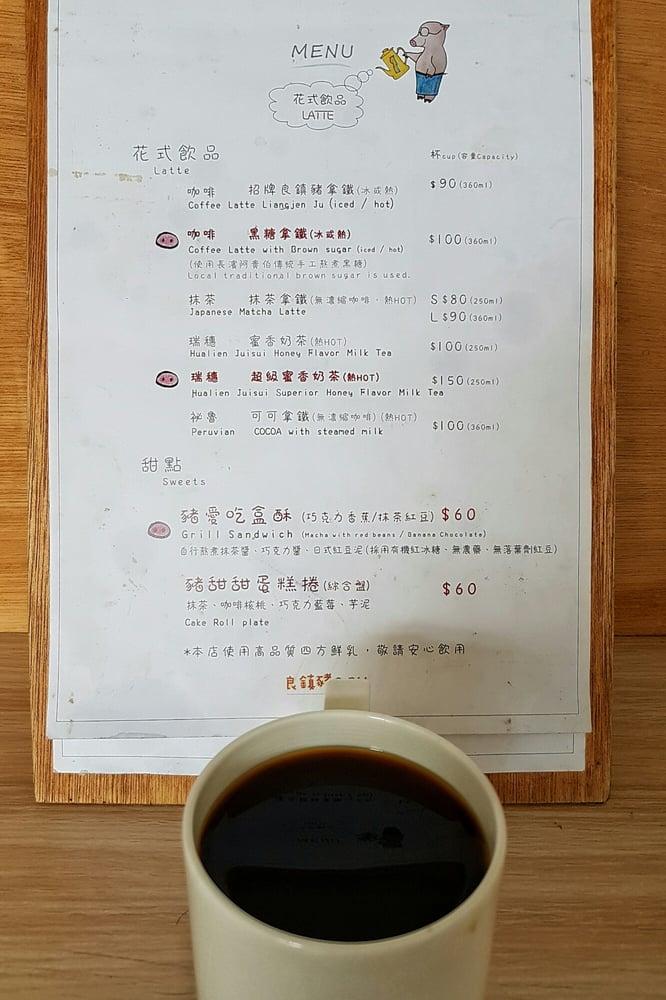 MENU
花式飲品
LATTE
花式飲品
Latte
杯cup(容量Capacity)
咖啡 招牌良鎮豬拿鐵(冰或熱) $90(360ml)
Coffee Latte Liangjen Ju (iced / hot)
咖啡 黑糖拿鐵(冰或熱) $100(360ml)
Coffee Latte with Brown sugar (iced / hot)
(使用長濱阿貴伯傳統手工熬煮黑糖)
Local traditional brown sugar is used.
抹茶 抹茶拿鐵(無濃縮咖啡,熱HOT) S $80(250ml)
Japanese Matcha Latte L $90(360ml)
瑞穗 蜜香奶茶(熱HOT) $100(250ml)
Hualien Juisui Honey Flavor Milk Tea
瑞穗 超級蜜香奶茶(熱HOT) $150(250ml)
Hualien Juisui Superior Honey Flavor Milk Tea
祕魯 可可拿鐵(無濃縮咖啡)(熱HOT) $100(360ml)
Peruvian COCOA with steamed milk
甜點
Sweets
豬愛吃盒酥 (巧克力香蕉/抹茶紅豆) $60
Grill Sandwich (Macha with red beans / Banana Chocolate)
自行熬煮抹茶醬、巧克力醬、日式紅豆泥(採用有機紅冰糖、無農藥、無落葉劑紅豆)
豬甜甜蛋糕捲(綜合盤) $60
抹茶、咖啡核桃、巧克力藍莓、芋泥
Cake Roll plate
*本店使用高品質四方鮮乳，敬請安心飲用
良鎮豬